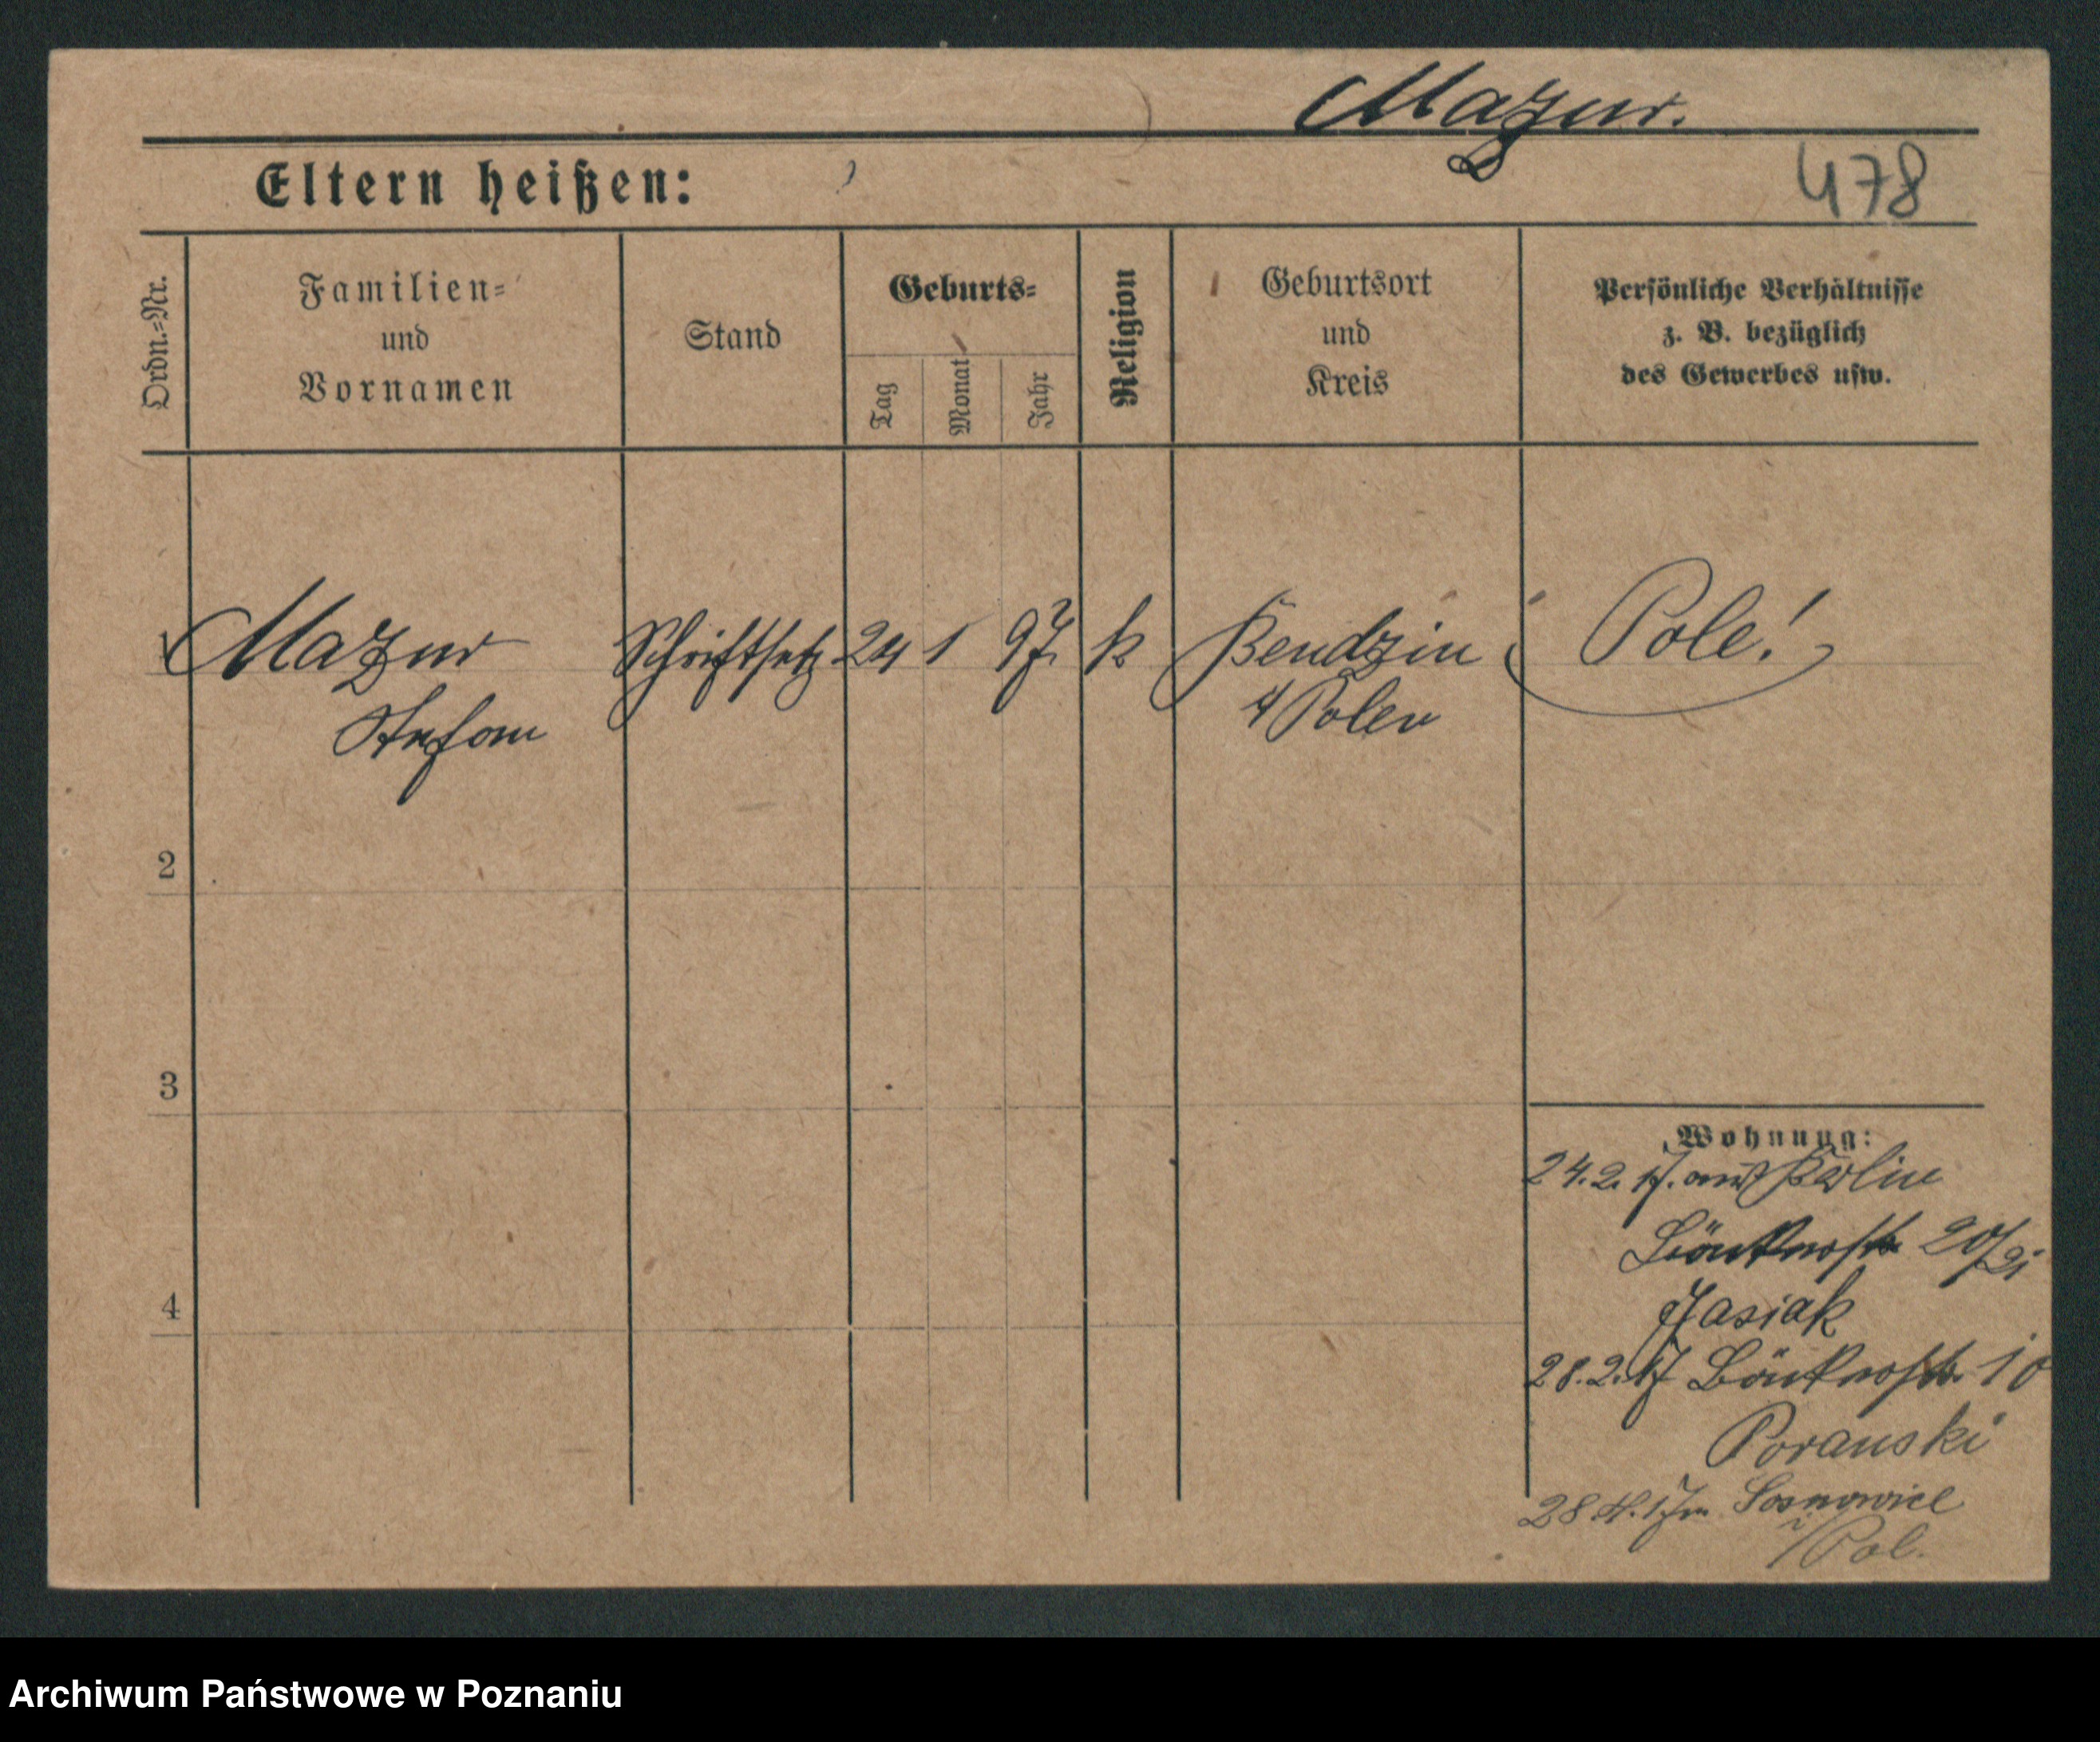 Mazur.
Eltern heißen:
478
Ordn.=Nr.
Familien=
und
Vornamen
Stand
Geburts=
Tag
Monat
Jahr
Religion
Geburtsort
und
Kreis
Persönliche Verhältnisse
z. B. bezüglich
des Gewerbes usw.
Mazur Schriftsetz 24 1 97. k Bendzin Pole!
Stefan
Polen
2
3
4
Wohnung:
24.2.17. aus Berlin
20/21
Jasiak
28.2.17 10
Poranski
28 4. 17 n Sosnowice
i/Pol.
Archiwum Państwowe w Poznaniu